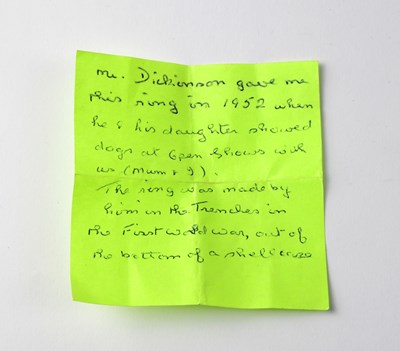 Mr. Dickinson gave me
this ring in 1952 when
he & his daughter showed
dogs at Open Shows with
us (Mum & I).
The ring was made by
him in the Trenches in
the First world war, out of
the bottom of a shell case